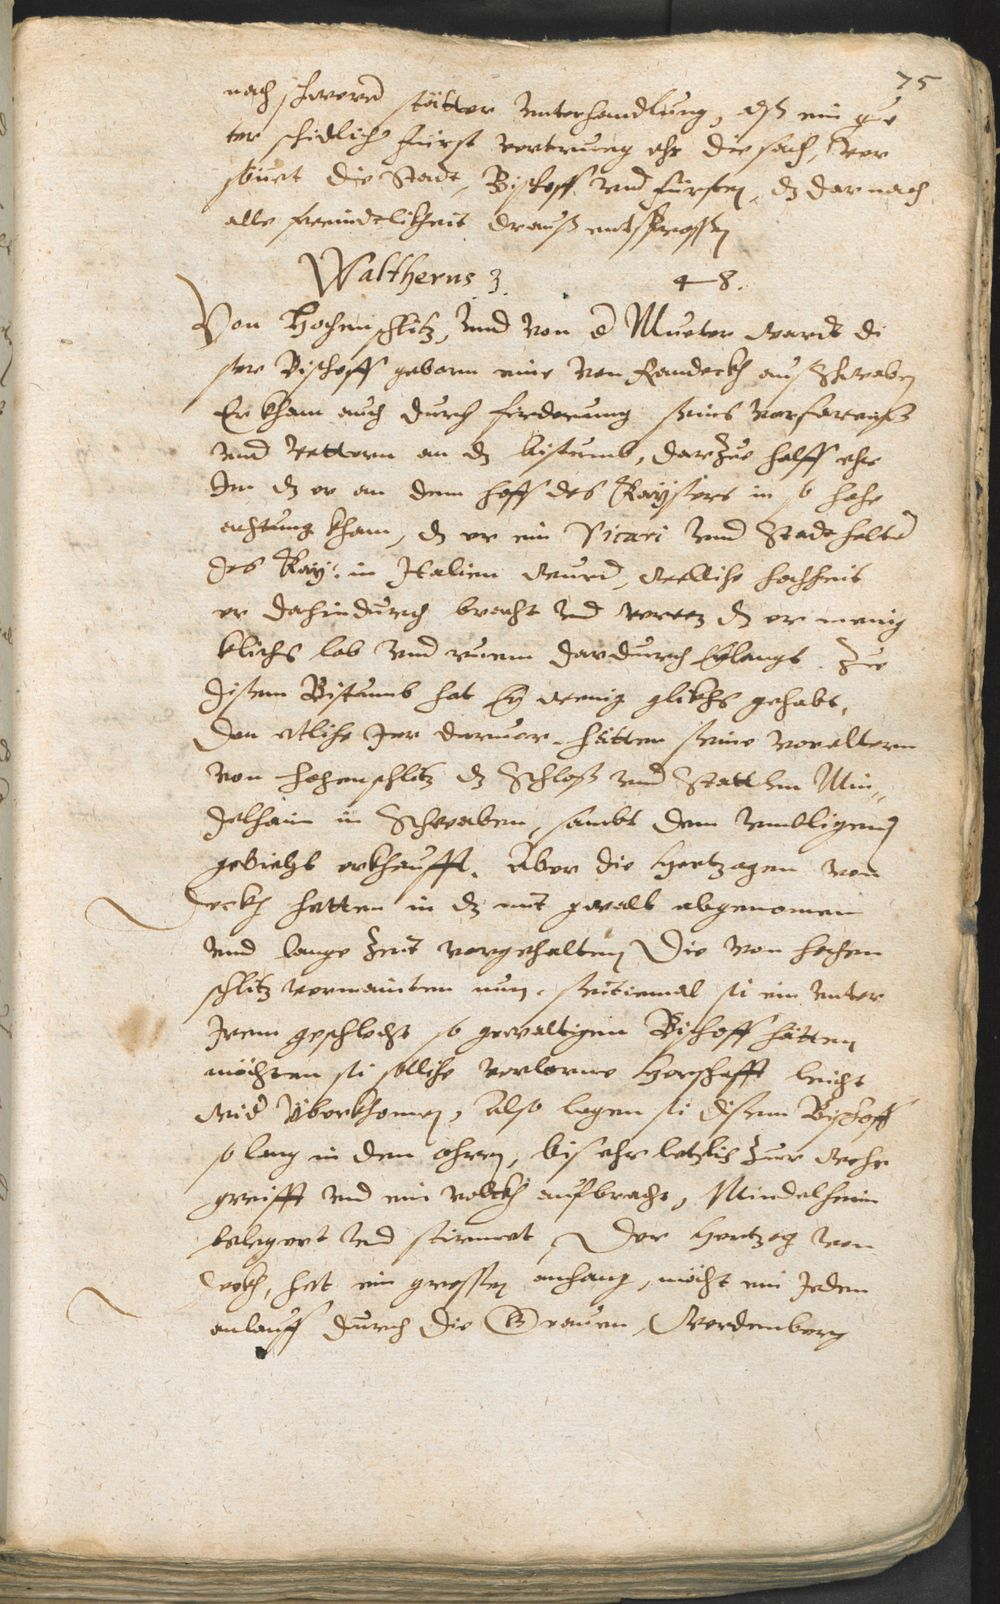 75
nach schwerer stätter Unterhandlung, alß ein gue
ter schidlich Fürst vertruog ehr die sach, ver
sönet die Stadt, Bischoff und fürsten, dz darnach
alle freindtlikheit drauß entsprossen
Waltherus 3. 48.
Von Hochenschlitz, und von d Mueter wardt di
ser Bischoff geborn eine von Randeckh auß Schwaben
Er kham auch durch firderung seines vorfarenß
und vettern an dz bistumb, darzue halff ehr
Im dz er an dem hoff des Kaysers in so hohe
achtung kham, dz er ein Vicari und Stadthalter
des Kay: in Italien wurd, welliche hochheit
er dahindurch bracht und dz er menig
klichs lob und ruem dardurch Erlangt. Zue
disem Bistumb hat Er wenig glikhs gehabt,
dan etliche Jar darvor hätten seine voreltern
von Hohenschlitz dz Schloß und Statt zu Min„
delhaim in Schwaben, sambt dem umbligend
gebieht erkhaufft. Aber die Hertzogen von
Deckh hetten in dz mit gwalt abgenomen
und lange Zeit vorgehalten, Die von Hochen
schlitz vermainten nun, seitemal si ein unter
Irem geschlecht so gewaltigen Bischoff hätten
möchten si solliche verlorne Herschafft leicht
wider überkhomen, Also lagen si disem Bischoff
so lang in den ohren, bis ehr letzlich Zuer wehr
greifft und ein volckh aufbracht, Mindelheim
belegert und stirmet, Der Hertzog von
Deckh, hat ein grossen anhang, möcht ein Jeden
anlauff durch die Graven, Werdenberg